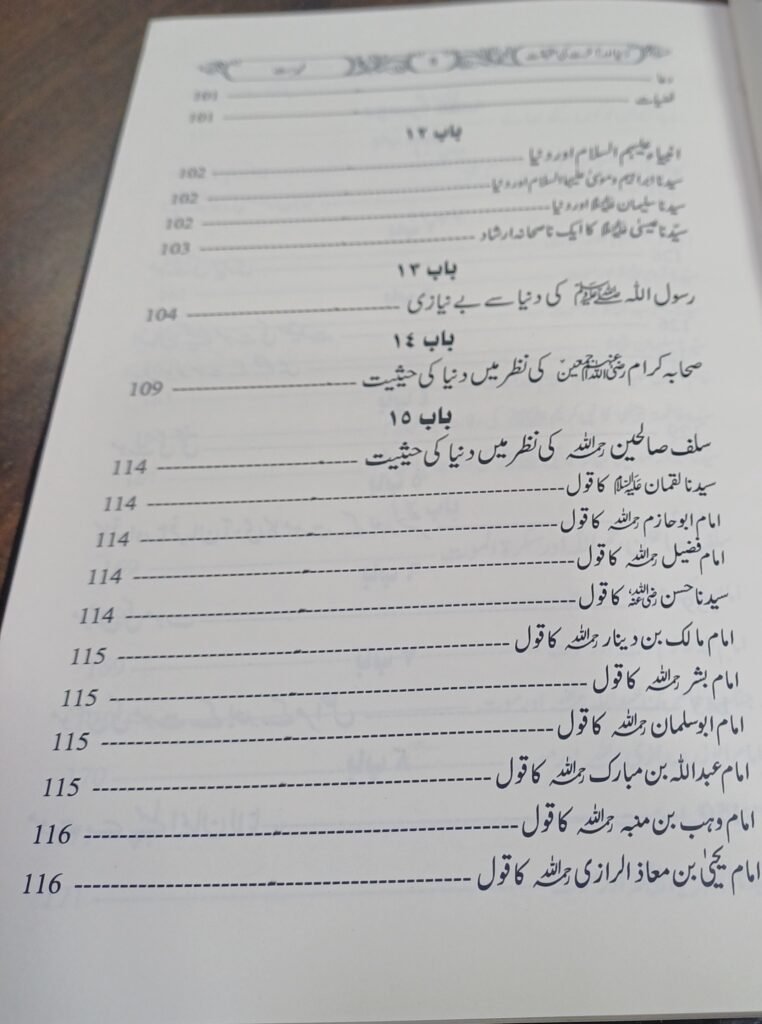 فہرست
دعا 101
101
باب ۱۲
انبیاء علیہم السلام اور دنیا 102
سیدنا ابراہیم و موسیٰ علیہما السلام اور دنیا 102
سیدنا سلیمان علیہ السلام اور دنیا 102
سیدنا عیسیٰ علیہ السلام کا ایک ناصحانہ ارشاد 103
باب ۱۳
رسول اللہ ﷺ کی دنیا سے بے نیازی 104
باب ۱۴
صحابہ کرام رضی اللہ عنہم اجمعین کی نظر میں دنیا کی حیثیت 109
باب ۱۵
سلف صالحین رحمہ اللہ کی نظر میں دنیا کی حیثیت 114
سیدنا لقمان علیہ السلام کا قول 114
امام ابو حازم رحمہ اللہ کا قول 114
امام فضیل رحمہ اللہ کا قول 114
سیدنا حسن رضی اللہ عنہ کا قول 114
امام مالک بن دینار رحمہ اللہ کا قول 115
امام بشر رحمہ اللہ کا قول 115
امام ابو سلمان رحمہ اللہ کا قول 115
امام عبداللہ بن مبارک رحمہ اللہ کا قول 115
امام وہب بن منبہ رحمہ اللہ کا قول 116
امام یحییٰ بن معاذ الرازی رحمہ اللہ کا قول 116